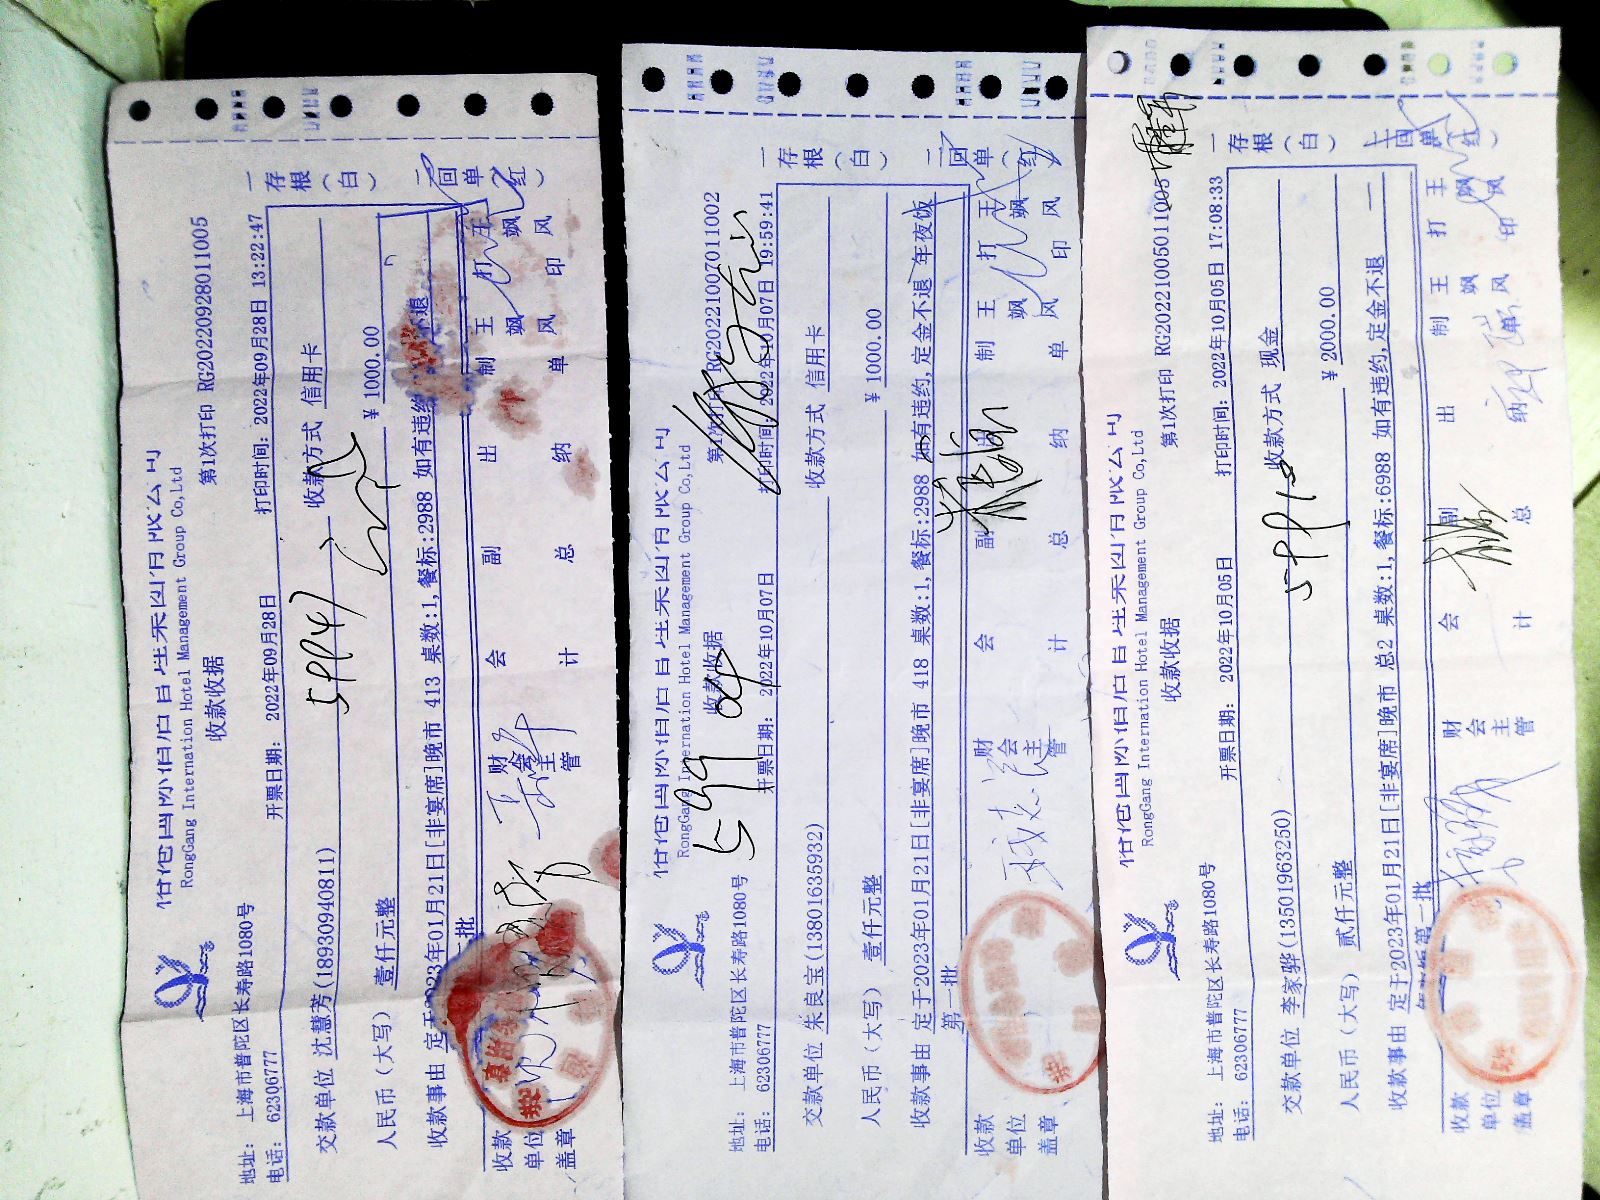 RongGang International Hotel Management Group Co,Ltd
收款收据
第1次打印 RG20220928011005
地址： 上海市普陀区长寿路1080号
电话： 62306777
开票日期： 2022年09月28日
打印时间： 2022年09月28日 13:22:47
交款单位 沈慧芳(18930940811)
收款方式 信用卡
人民币（大写） 壹仟元整
¥ 1000.00
收款事由 定于2023年01月21日[非宴席]晚市 413 桌数:1,餐标:2988 如有违约
不退
批
收款单位盖章
财会主管
会计
副总
出纳
制单
王飒风
打印
王飒风
一存根（白）
二回单（红）
RongGang International Hotel Management Group Co,Ltd
收款收据
第1次打印 RG20221007011002
地址： 上海市普陀区长寿路1080号
电话： 62306777
开票日期： 2022年10月07日
打印时间： 2022年10月07日 19:59:41
交款单位 朱良宝(13801635932)
收款方式 信用卡
人民币（大写） 壹仟元整
¥ 1000.00
收款事由 定于2023年01月21日[非宴席]晚市 418 桌数:1,餐标:2988 如有违约,定金不退 年夜饭
第一批
收款单位盖章
财会主管
会计
副总
出纳
制单
王飒风
打印
王飒风
一存根（白）
二回单（红）
RongGang International Hotel Management Group Co,Ltd
收款收据
第1次打印 RG20221005011005
地址： 上海市普陀区长寿路1080号
电话： 62306777
开票日期： 2022年10月05日
打印时间： 2022年10月05日 17:08:33
交款单位 李家骅(13501963250)
收款方式 现金
人民币（大写） 贰仟元整
¥ 2000.00
收款事由 定于2023年01月21日[非宴席]晚市 总2 桌数:1,餐标:6988 如有违约,定金不退
年夜饭第一批
收款单位盖章
财会主管
会计
副总
出纳
制单
王飒风
打印
王飒风
一存根（白）
二回单（红）